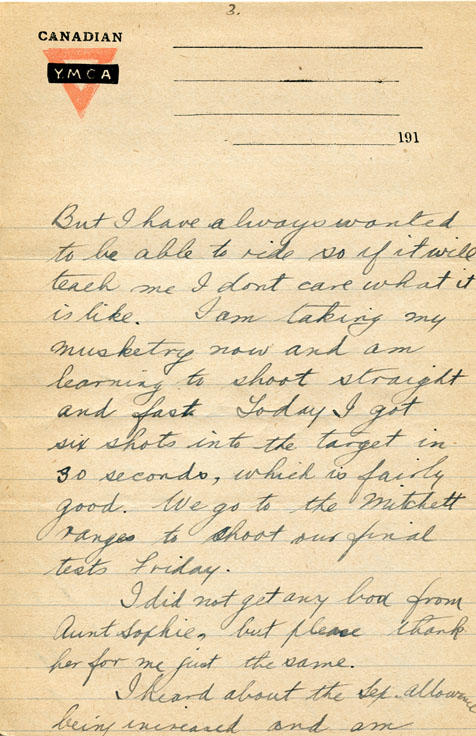 3.
CANADIAN
YMCA
191
But I have always wanted
to be able to ride so if it will
teach me I dont care what it
is like. I am taking my
musketry now and am
learning to shoot straight
and fast Today I got
six shots into the target in
30 seconds, which is fairly
good. We go to the Mitchett
ranges to shoot our final
tests Friday.
I did not get any box from
Aunt Sophie, but please thank
her for me just the same.
I heard about the Sep. allowance
being increased and am